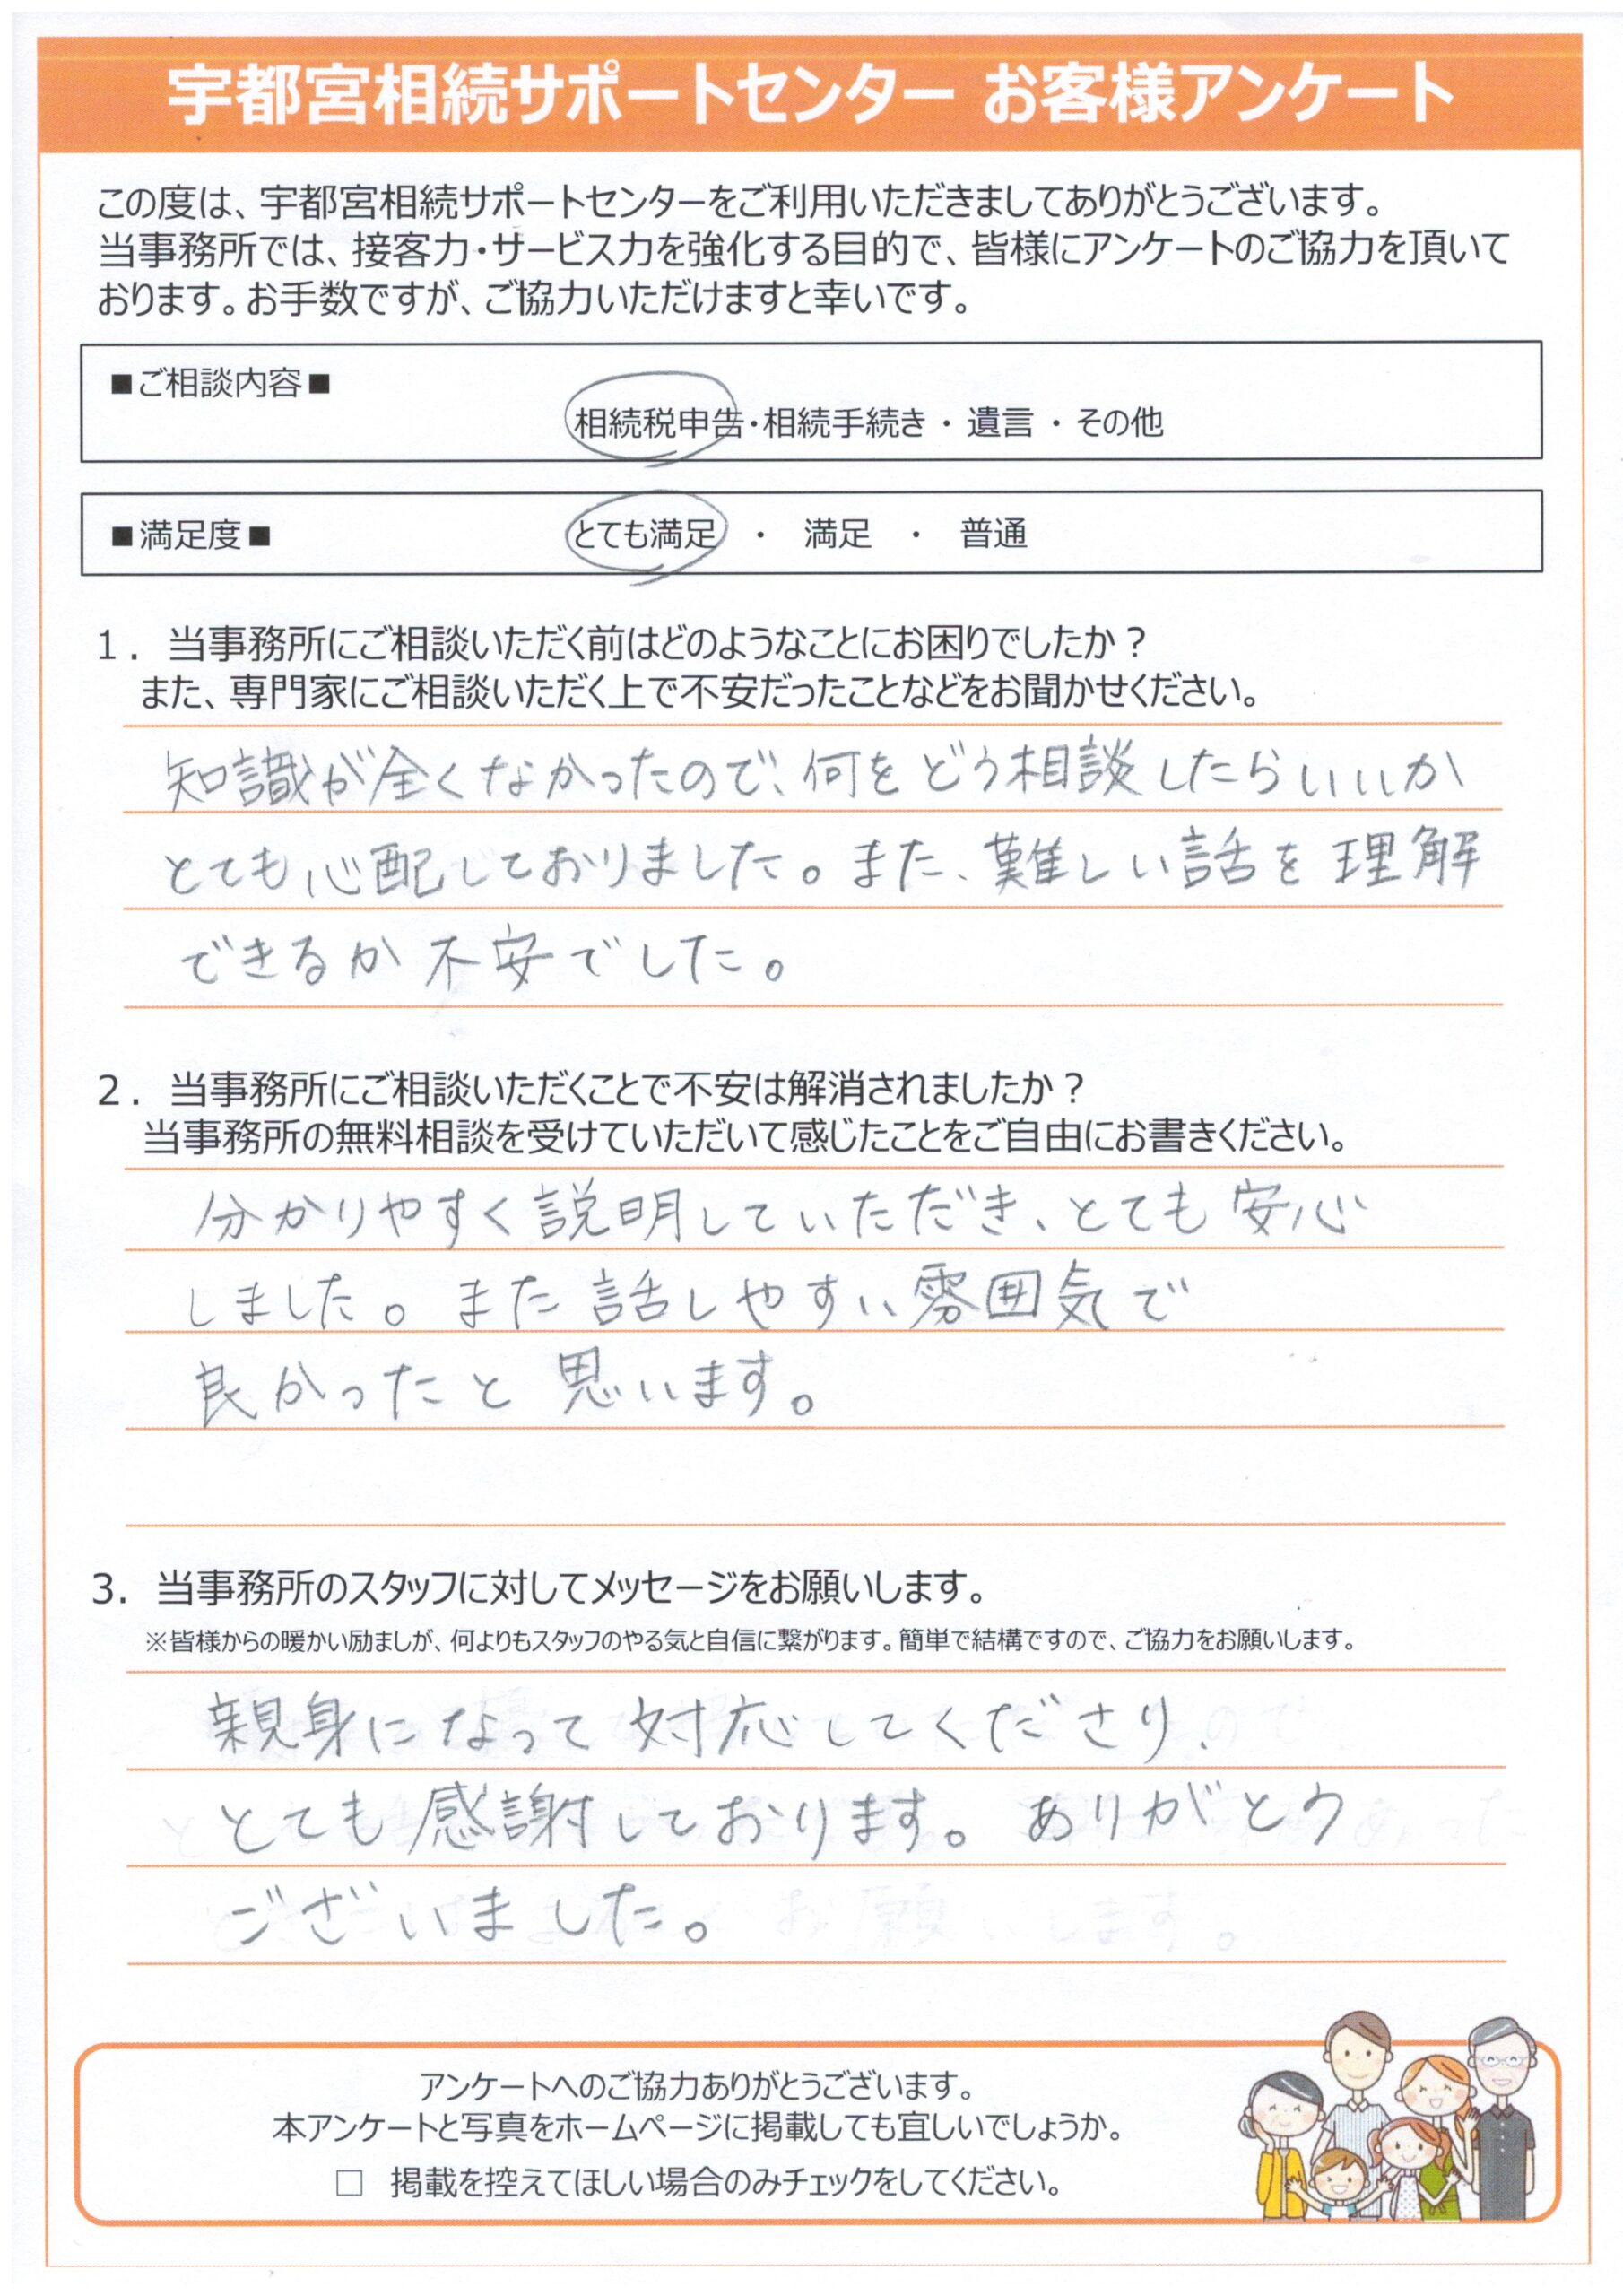 宇都宮相続サポートセンター お客様アンケート
この度は、宇都宮相続サポートセンターをご利用いただきましてありがとうございます。
当事務所では、接客力・サービス力を強化する目的で、皆様にアンケートのご協力を頂いて
おります。お手数ですが、ご協力いただけますと幸いです。
■ご相談内容■
相続税申告・相続手続き・遺言・その他
■満足度■ とても満足 ・ 満足 ・ 普通
1．当事務所にご相談いただく前はどのようなことにお困りでしたか？
また、専門家にご相談いただく上で不安だったことなどをお聞かせください。
知識が全くなかったので、何をどう相談したらいいか
とても心配しておりました。また、難しい話を理解
できるか不安でした。
2．当事務所にご相談いただくことで不安は解消されましたか？
当事務所の無料相談を受けていただいて感じたことをご自由にお書きください。
分かりやすく説明していただき、とても安心
しました。また話しやすい雰囲気で
良かったと思います。
3．当事務所のスタッフに対してメッセージをお願いします。
※皆様からの暖かい励ましが、何よりもスタッフのやる気と自信に繋がります。簡単で結構ですので、ご協力をお願いします。
親身になって対応してくださり、
とても感謝しております。ありがとう
ございました。
アンケートへのご協力ありがとうございます。
本アンケートと写真をホームページに掲載しても宜しいでしょうか。
□ 掲載を控えてほしい場合のみチェックをしてください。